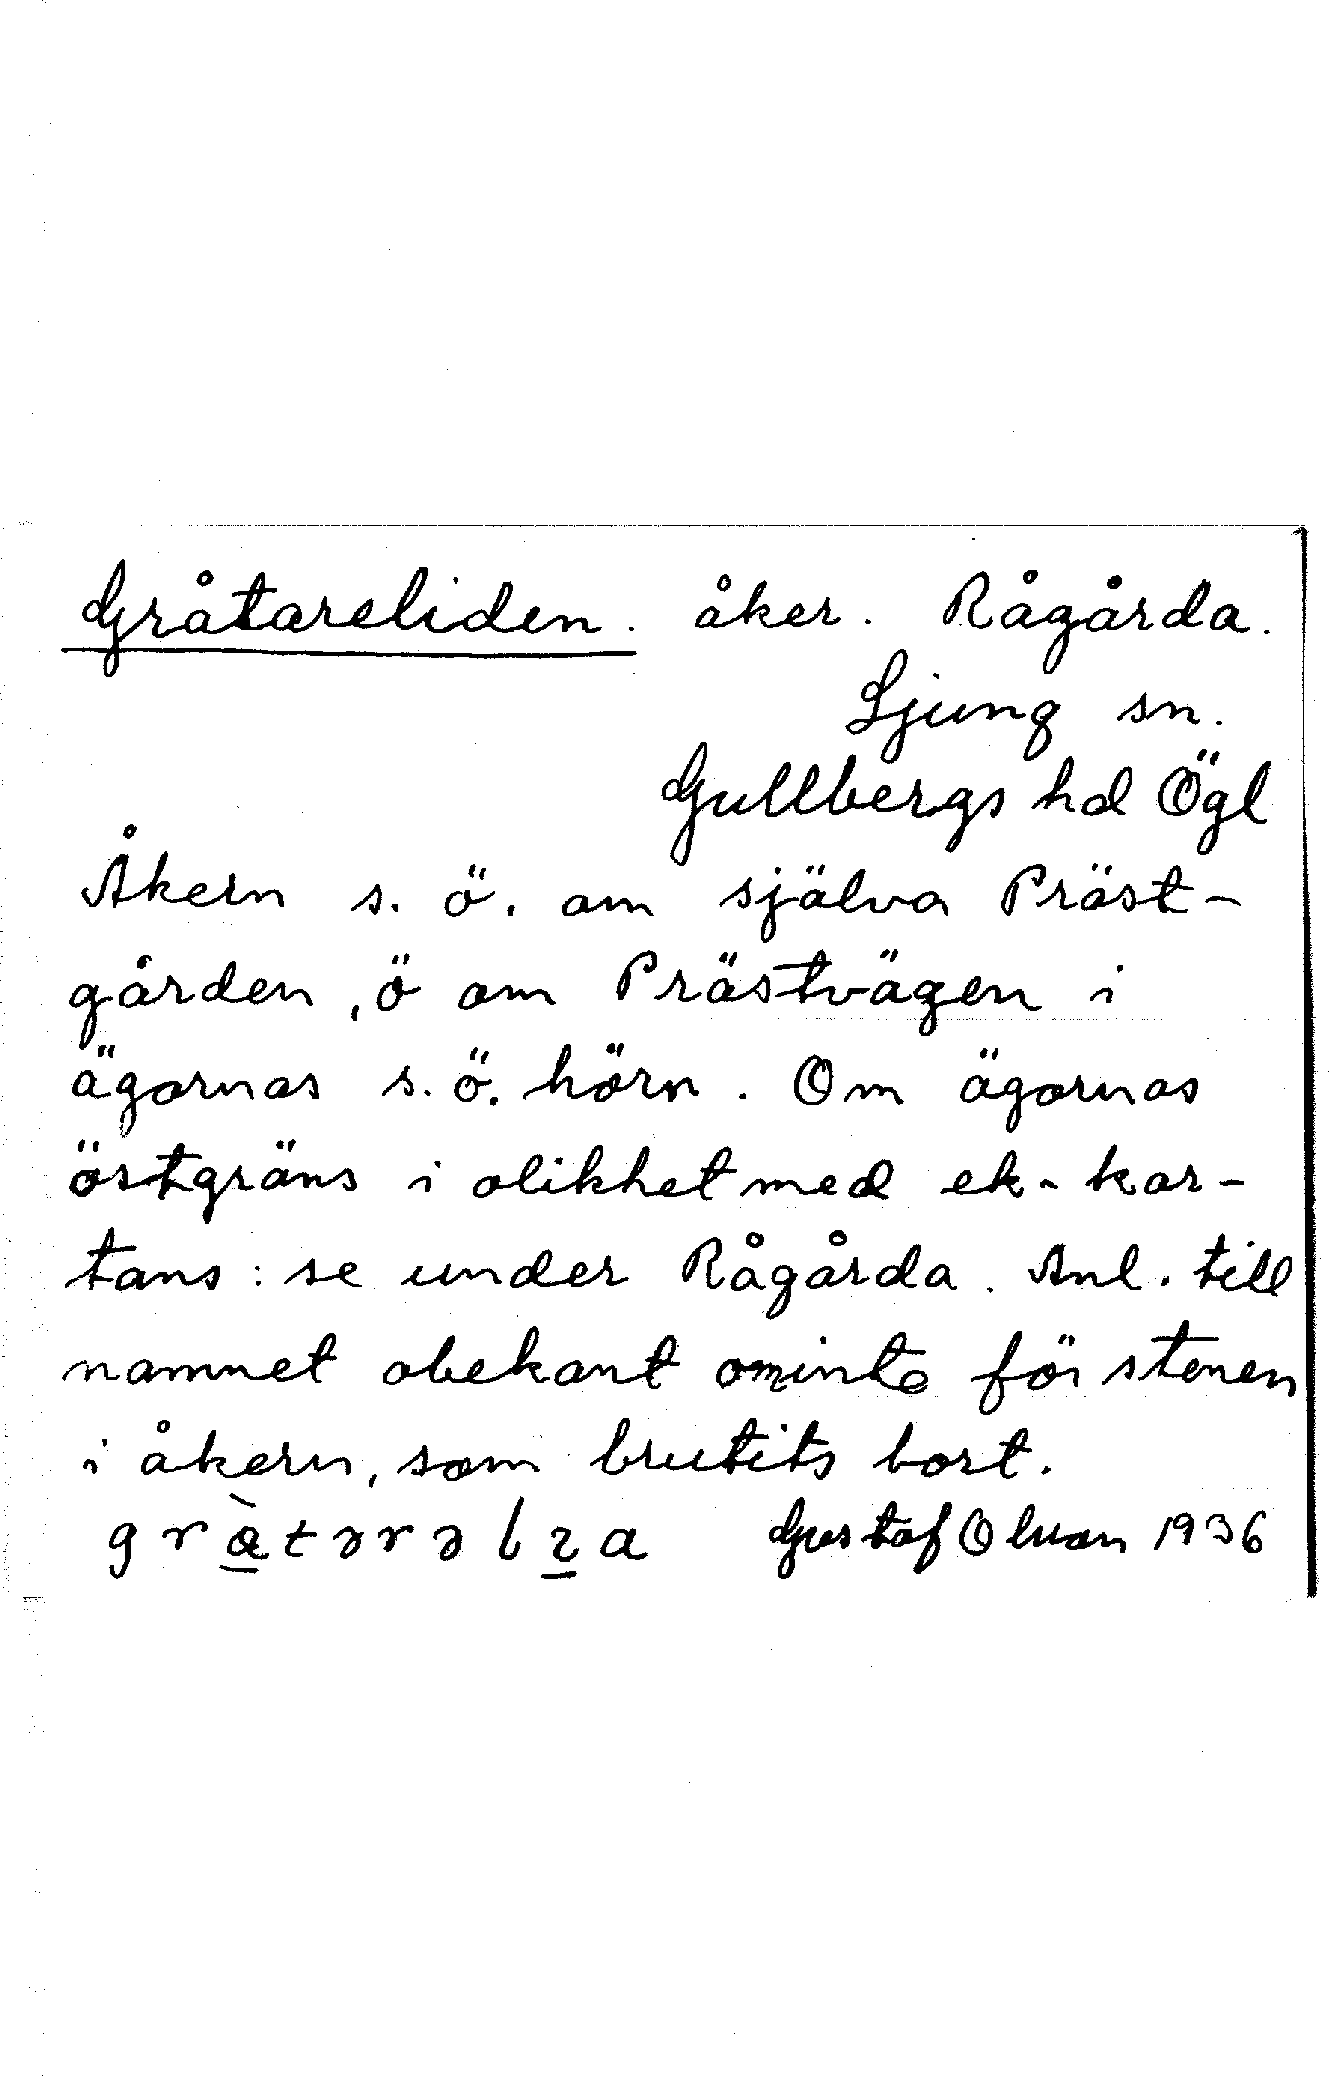 Gråtareliden. åker. Rågårda.
Ljung sn.
Gullbergs hd Ögl
Åkern s. ö. om själva Präst-
gården, ö om Prästvägen i
ägornas s. ö. hörn. Om ägornas
östgräns i olikhet med ek-kar-
tans: se under Rågårda. Anl. till
namnet obekant om inte för stenen
i åkern, som brutits bort.
Gustaf Olson 1936